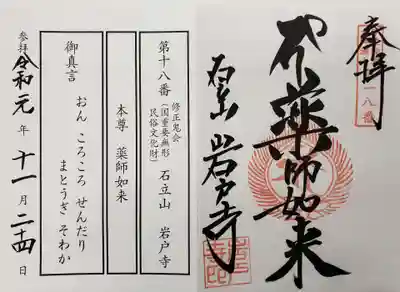 奉拝
十八番
薬師如来
石立山
岩戸寺
第十八番
修正鬼会
(国重要無形
民俗文化財)
石立山 岩戸寺
本尊 薬師如来
御真言
おん ころころ せんだり
まとうぎ そわか
参拝 令和元年十一月二十四日